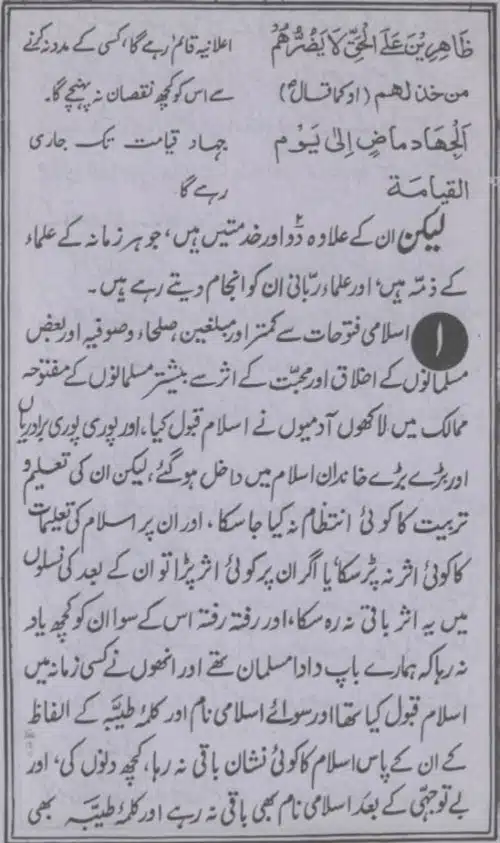 ظَاهِرِيْنَ عَلَى الْحَقِّ لَا يَضُرُّهُمْ اعلانیہ قائم رہے گا، کسی کے مدد نہ کرنے
من خذلهم (اوکما قال) سے اس کو کچھ نقصان نہ پہنچے گا۔
اَلْجِهَاد مَاضٍ اِلىٰ يَوْم جہاد قیامت تک جاری
القيامة رہے گا
لیکن ان کے علاوہ دو اور خدمتیں ہیں، جو ہر زمانہ کے علماء
کے ذمہ ہیں، اور علماء ربّانی ان کو انجام دیتے رہے ہیں۔
۱ اسلامی فتوحات سے کمتر اور مبلغین، صلحاء و صوفیہ اور بعض
مسلمانوں کے اخلاق اور محبّت کے اثر سے بیشتر مسلمانوں کے مفتوحہ
ممالک میں لاکھوں آدمیوں نے اسلام قبول کیا، اور پوری پوری برادریاں
اور بڑے بڑے خاندان اسلام میں داخل ہو گئے، لیکن ان کی تعلیم و
تربیت کا کوئی انتظام نہ کیا جا سکا، اور ان پر اسلام کی تعلیمات
کا کوئی اثر نہ پڑ سکا، یا اگر ان پر کوئی اثر پڑا تو ان کے بعد کی نسلوں
میں یہ اثر باقی نہ رہ سکا، اور رفتہ رفتہ اس کے سوا ان کو کچھ یاد
نہ رہا کہ ہمارے باپ دادا مسلمان تھے اور انھوں نے کسی زمانہ میں
اسلام قبول کیا تھا اور سوائے اسلامی نام اور کلمۂ طیّبہ کے الفاظ
کے ان کے پاس اسلام کا کوئی نشان باقی نہ رہا، کچھ دلوں کی، اور
بے توجہی کے بعد اسلامی نام بھی باقی نہ رہے اور کلمۂ طیّبہ بھی